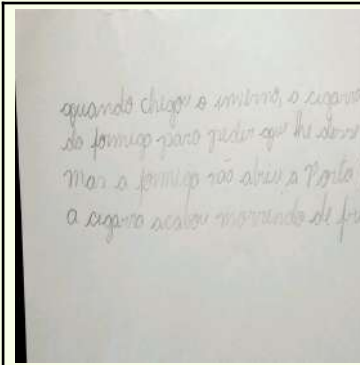 quando chegou o inverno, a cigarra
da formiga para pedir que lhe desse
mas a formiga não abriu a Porta
a cigarra acabou morrendo de fri